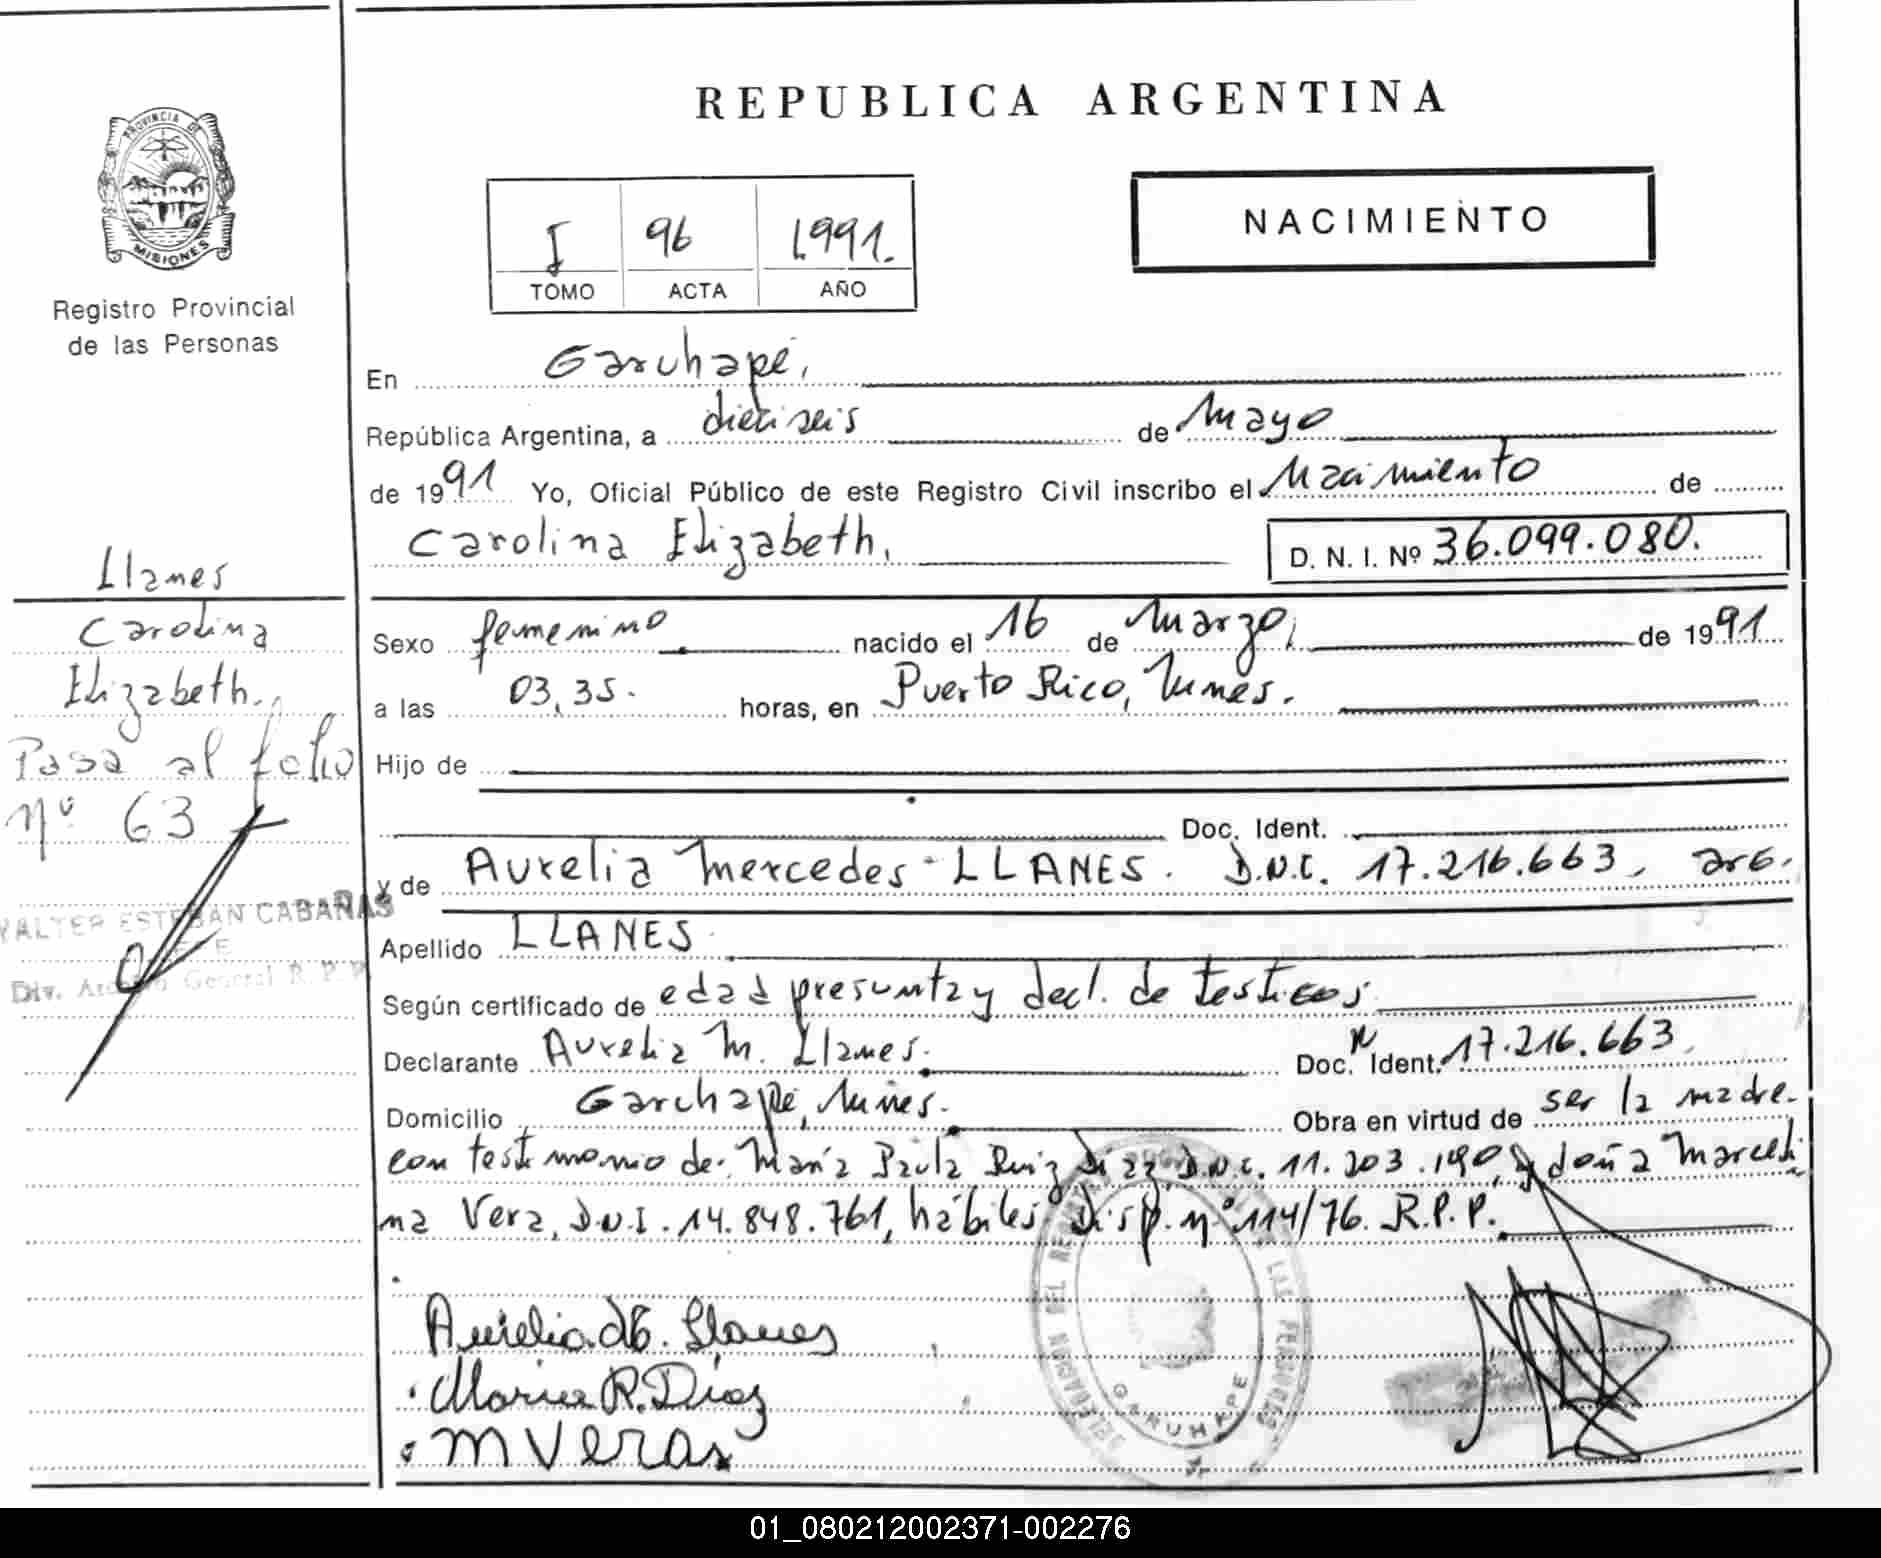 REPUBLICA ARGENTINA
PROVINCIA DE
MISIONES
Registro Provincial
de las Personas
I 96 1991.
TOMO ACTA AÑO
NACIMIENTO
En Garuhapé,
República Argentina, a dieciseis de Mayo
de 1991 Yo, Oficial Público de este Registro Civil inscribo el Nacimiento de
Carolina Elizabeth, D. N. I. Nº 36.099.080.
Llanes
Carolina
Elizabeth.
Pasa al folio
nº 63
WALTER ESTEBAN CABAÑAS
JEFE
Div. Archivo General R. P. P.
Sexo femenino nacido el 16 de Marzo, de 1991
a las 03,35. horas, en Puerto Rico, Mnes.
Hijo de
Doc. Ident.
y de Aurelia Mercedes LLANES. D.N.I. 17.216.663, arg.
Apellido LLANES
Según certificado de edad presunta y decl. de testigos
Declarante Aurelia M. Llanes. Doc. Ident. 17.216.663,
Domicilio Garuhapé, Mnes. Obra en virtud de ser la madre.
con testimonio de: María Paula Ruiz Diaz, D.N.I. 11.203.190, y doña Marceli
na Vera, D.N.I. 14.848.761, hábiles Disp. nº 114/76. R.P.P.
Aurelia M. Llanes
Maria R. Diaz
M Vera
DELEGACION DEL REGISTRO PROVINCIAL DE LAS PERSONAS
GARUHAPE
01_080212002371-002276